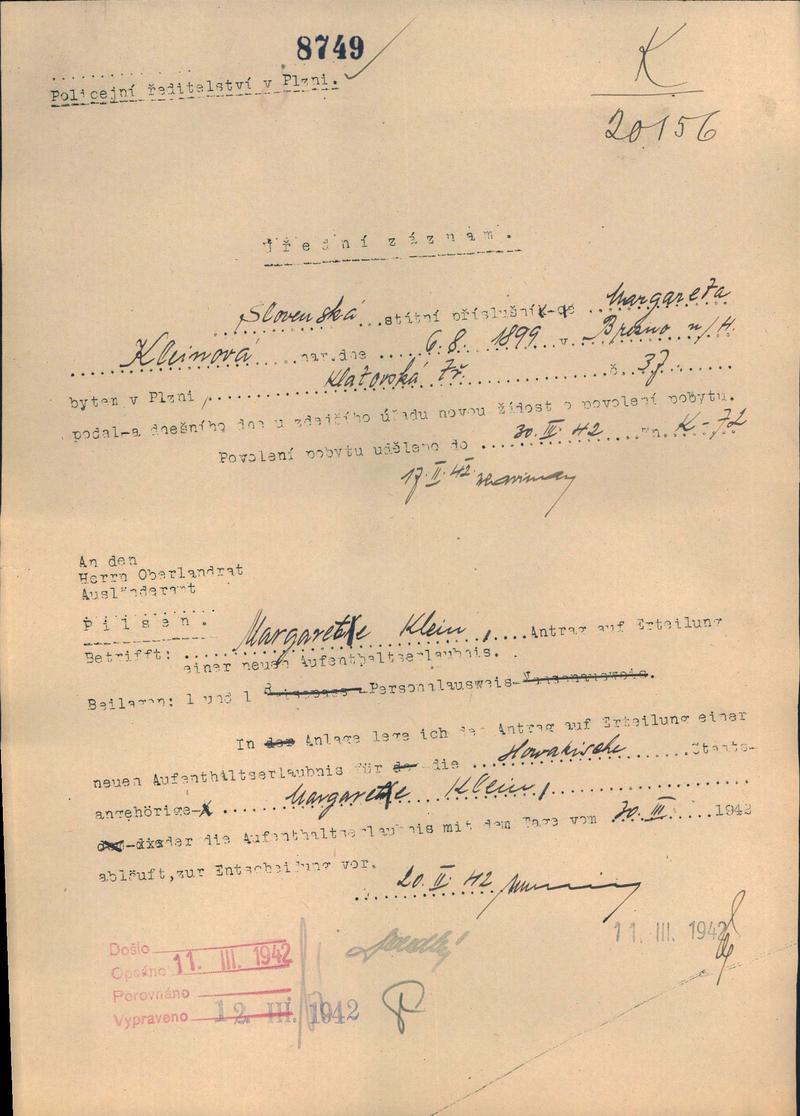 8749
Policejní ředitelství v Plzni.
K
20156
Úřední záznam.
Slovenská státní příslušník-ce Margareta
Kleinová nar.dne 6.8. 1899 v Brezno n/H.
bytem v Plzni, Klatovská tř. č. 37
podal-a dnešního dne u zdejšího úřadu novou žádost o povolení pobytu.
Povolení pobytu uděleno do 30.III.42 zn. K-72
17.II.42
An den
Herrn Oberlandrat
Ausländeramt
Pilsen.
Betrifft: Margarete Klein, Antrag auf Erteilung
einer neuen Aufenthaltserlaubnis.
Beilagen: 1 und 1 Reisepass-Personalausweis-
In der Anlage lege ich den Antrag auf Erteilung einer
neuen Aufenthaltserlaubnis für de die slowakische Staats-
angehörige-r Margarete Klein,
der-die der die Aufenthaltserlaubnis mit dem Tage vom 30.III. 1942
abläuft, zur Entscheidung vor.
20.II.42
11. III. 1942
Došlo
Opsáno 11. III. 1942
Porovnáno
Vypraveno 12. III. 1942